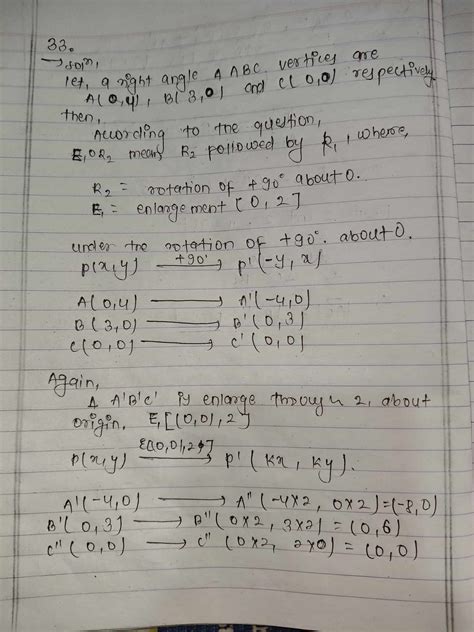 33.
→ soln,
let, a right angle ∆ ABC vertices are
A(0,4), B(3,0) and C(0,0) respectively
then,
According to the question,
E₁OR₂ means R₂ followed by R₁, where,
R₂ = rotation of +90° about O.
E₁ = enlargement [0, 2]
under the rotation of +90°. about O.
P(x,y) —+90°→ P'(-y, x)
A(0,4) ⟶ A'(-4,0)
B(3,0) ⟶ B'(0,3)
C(0,0) ⟶ C'(0,0)
Again,
∆ A'B'C' is enlarge through 2, about
origin. E₁[(0,0),2]
P(x,y) —E[(0,0),2]→ P'(kx, ky).
A'(-4,0) ⟶ A"(-4×2, 0×2)=(-8,0)
B'(0,3) ⟶ B"(0×2, 3×2) = (0,6)
C"(0,0) ⟶ C"(0×2, 2×0) = (0,0)